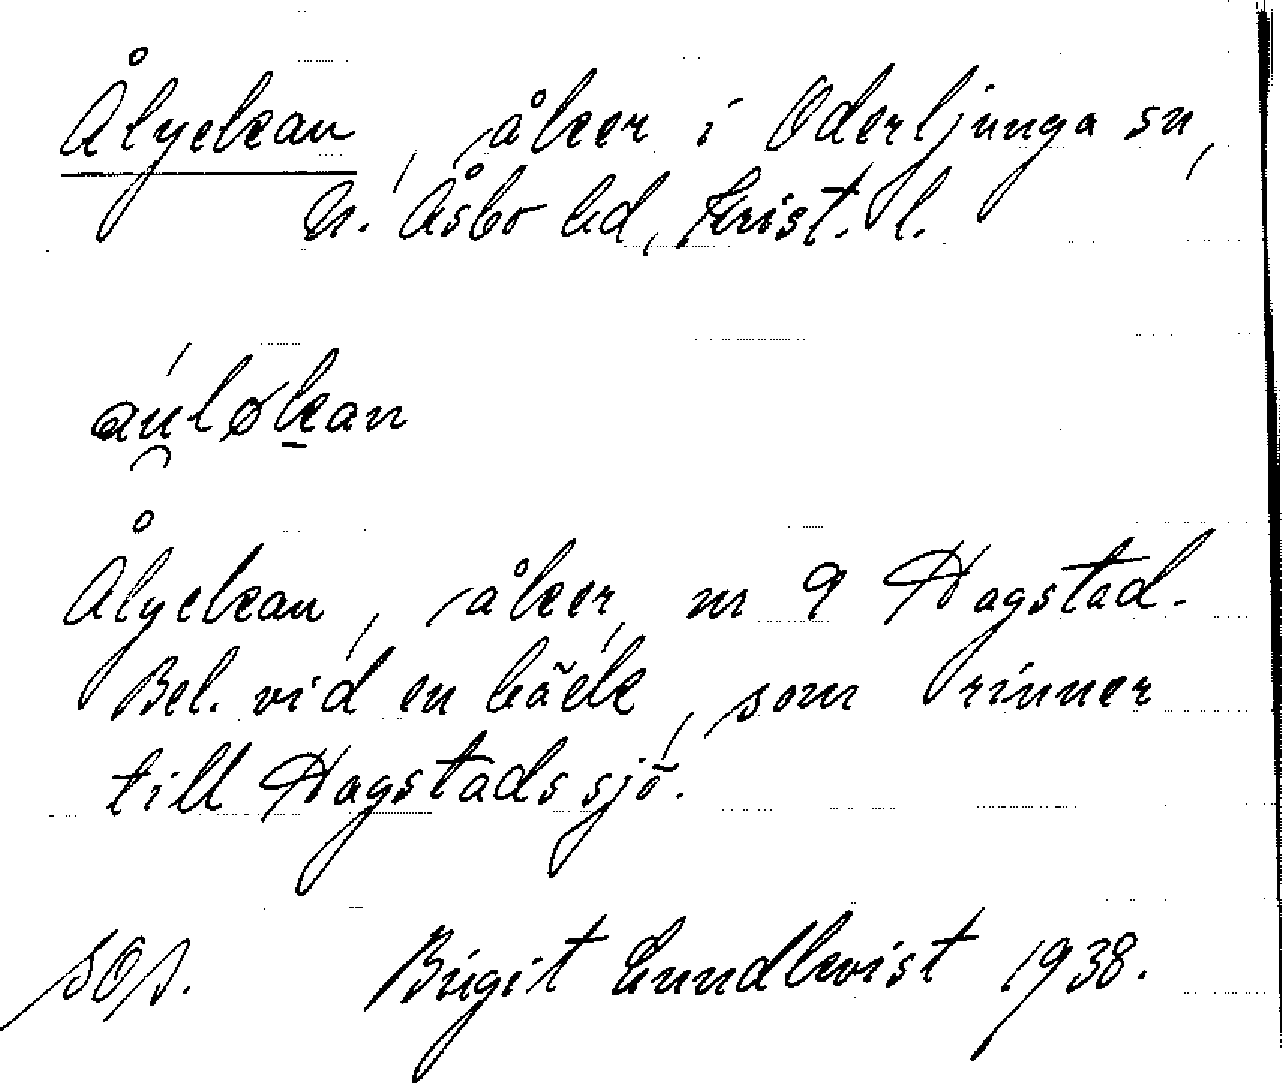 Ålyckan, åker i Oderljunga sn,
N. Åsbo hd, Krist. l.
áu̯løkan
Ålyckan, åker, nr 9 Hagstad.
Bel. vid en bäck, som rinner
till Hagstads sjö.
SOA. Birgit Lundkvist 1938.